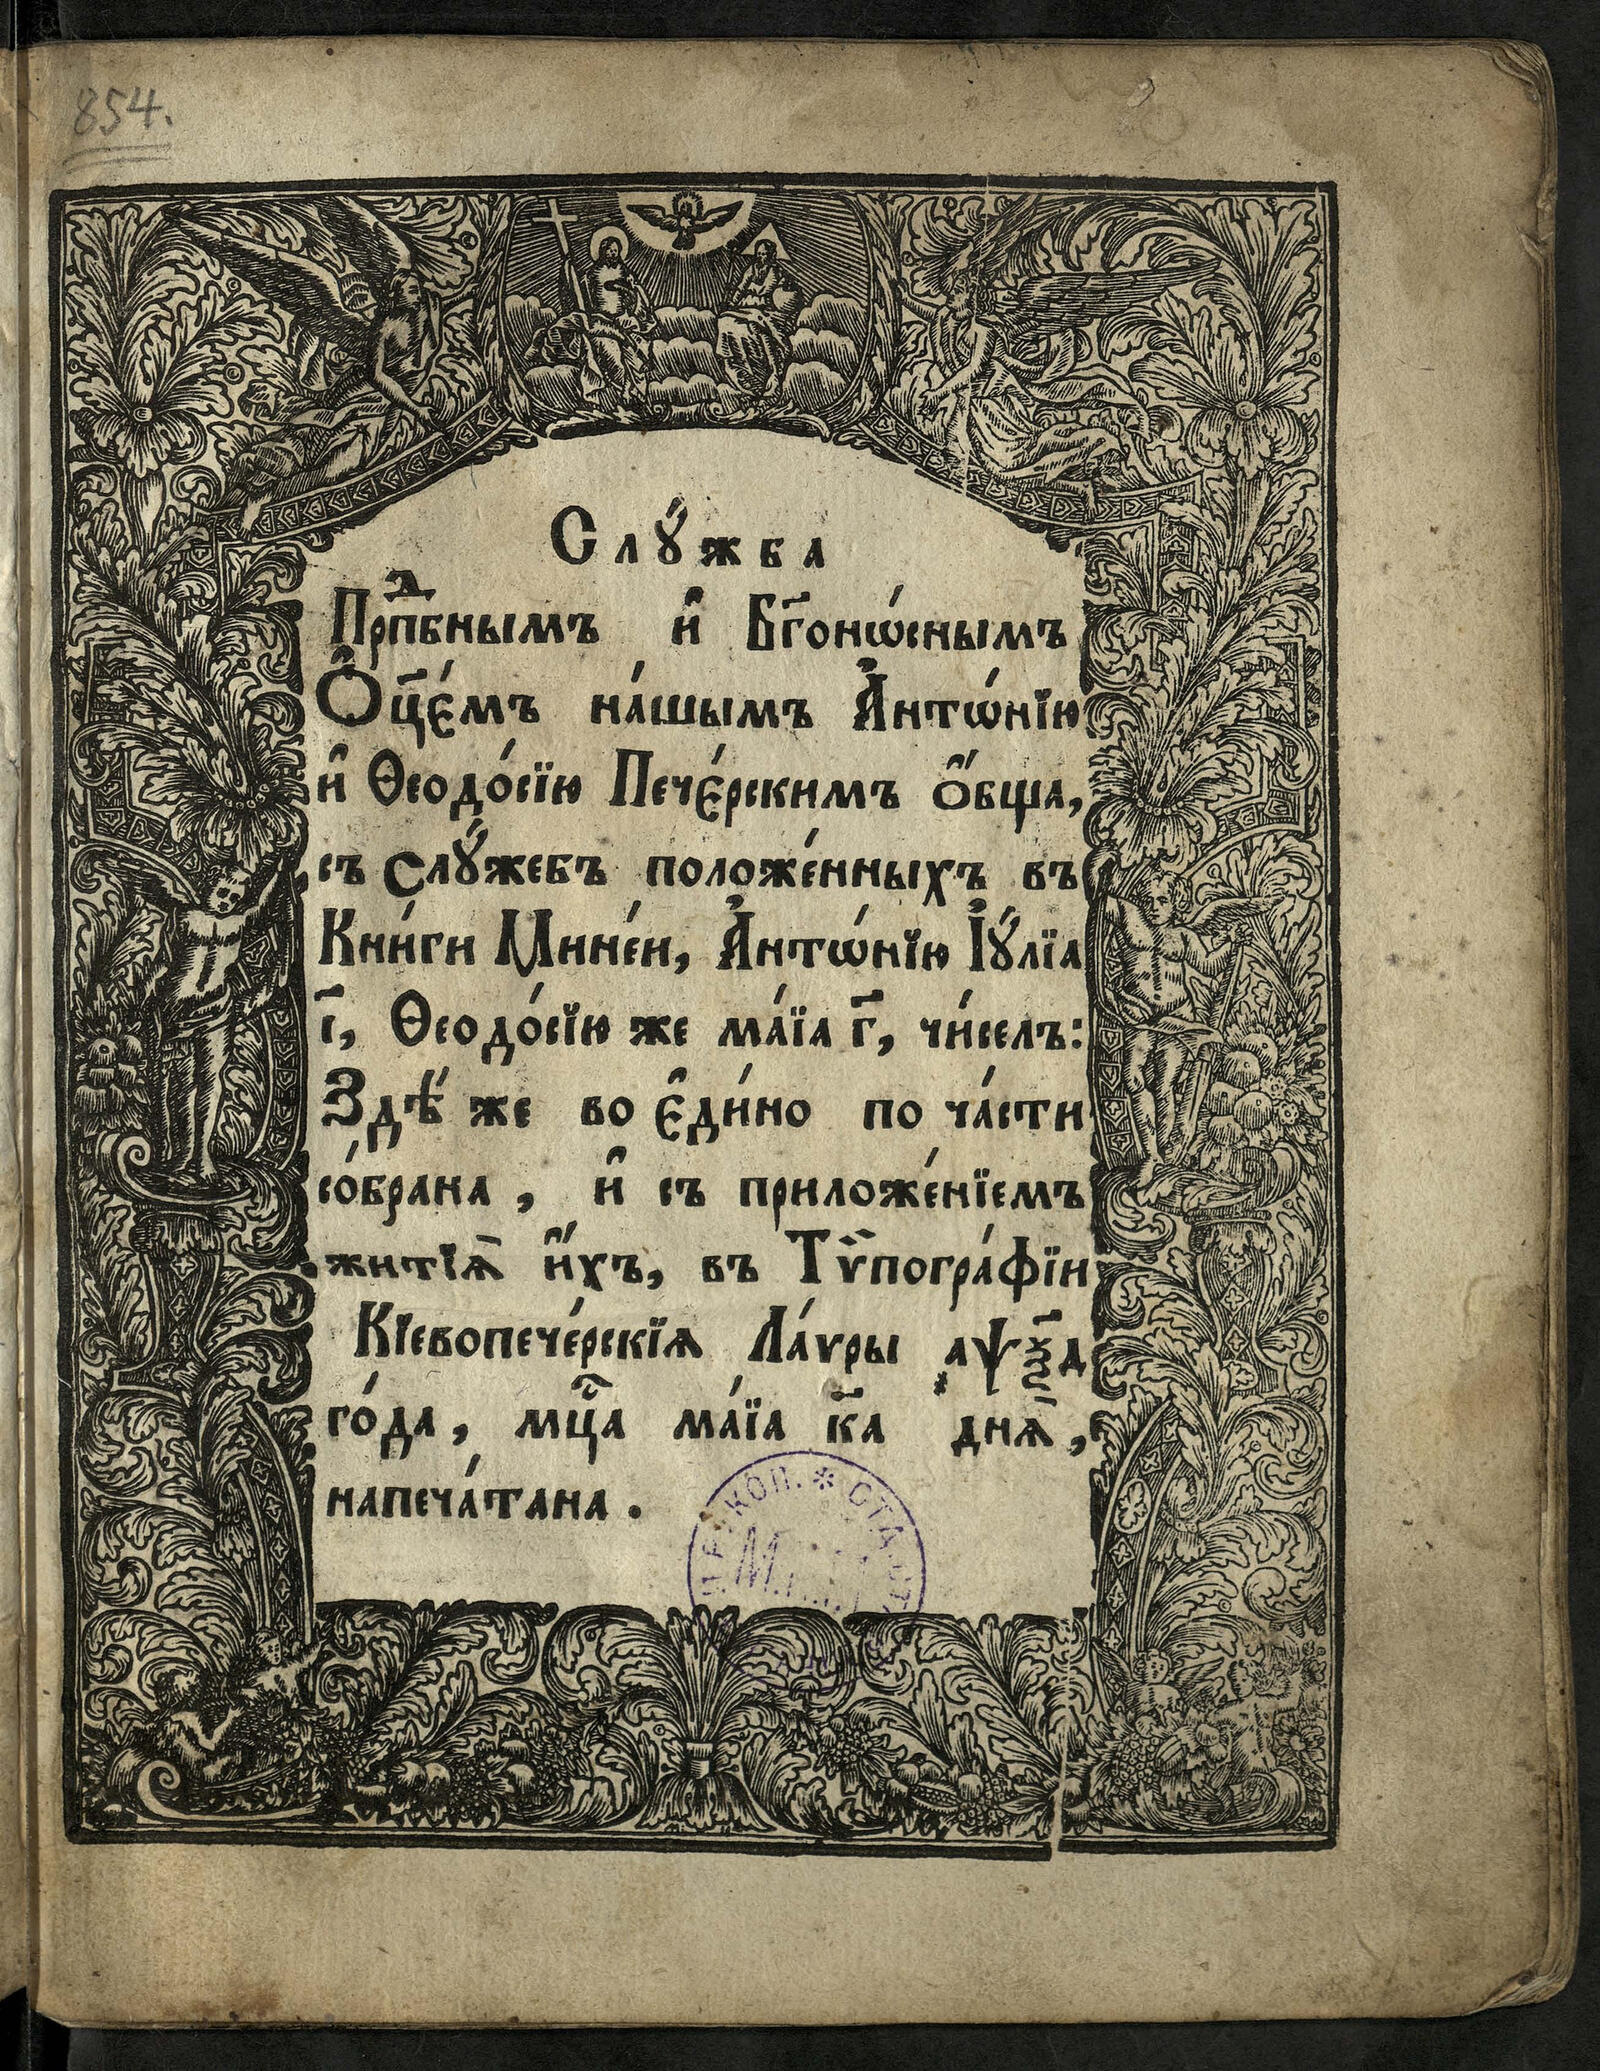 854.
Слꙋ́жба
Прпⷣбнымъ и҆ Бг҃онѡ́снымъ
Ѻ҆ц҃є́мъ на́шымъ А҆нтѡ́нїю
и҆ Ѳеодо́сїю Пече́рскимъ ѻ҆́бща,
съ Слꙋ́жебъ положе́нныхъ въ
Кни́ги Мине́и, А҆нтѡ́нїю І҆ꙋ́лїа
г҃і, Ѳеодо́сїю же ма́їа г҃, чи́селъ:
Здѣ́ же во є҆ди́но по ча́сти
со́брана, и҆ съ приложе́нїемъ
житїѧ̀ и҆́хъ, въ Тѵ̈погра́фїи
Кїевопече́рскїѧ Ла́ѵры ҂аѱѯ҃д
го́да, мц҇а ма́їа к҃а днѧ̀,
напеча́тана.